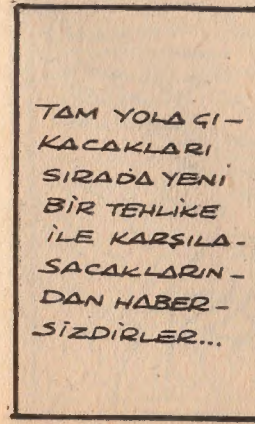 TAM YOLA ÇI-
KACAKLARI
SIRADA YENİ
BİR TEHLİKE
İLE KARŞILA-
SACAKLARIN-
DAN HABER-
SİZDİRLER...